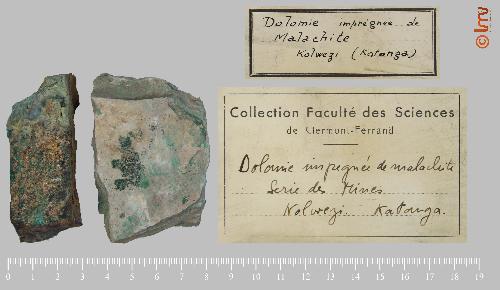 Dolomie imprégnée de
Malachite
Kolwezi (Katanga)
Collection Faculté des Sciences
de Clermont-Ferrand
Dolomie impregnée de malachite
Serie des Mines
Kolwezi Katanga.
0 1 2 3 4 5 6 7 8 9 10 11 12 13 14 15 16 17 18 19
© lmv